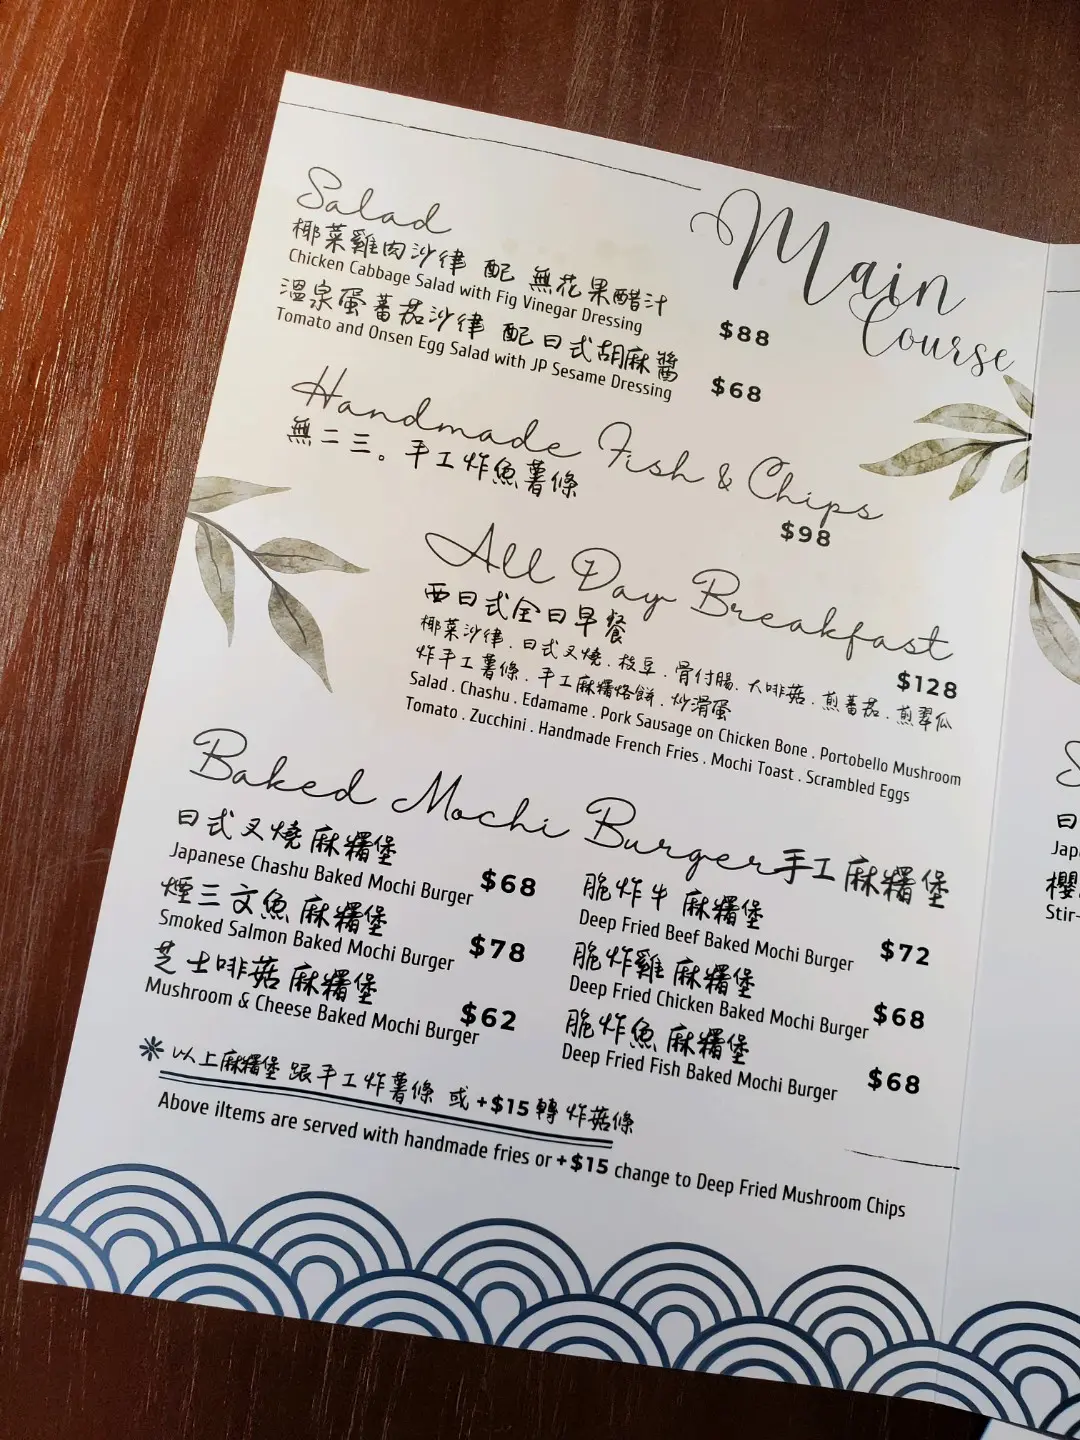 Main
Course
Salad
椰菜雞肉沙律 配 無花果醋汁
Chicken Cabbage Salad with Fig Vinegar Dressing
$88
溫泉蛋蕃茄沙律 配日式胡麻醬
Tomato and Onsen Egg Salad with JP Sesame Dressing
$68
Handmade Fish & Chips
無二三。手工炸魚薯條
$98
All Day Breakfast
西日式全日早餐
$128
椰菜沙律.日式叉燒.枝豆.骨付腸.大啡菇.煎蕃茄.煎翠瓜
炸手工薯條.手工麻糬烙餅.炒滑蛋
Salad . Chashu . Edamame . Pork Sausage on Chicken Bone . Portobello Mushroom
Tomato . Zucchini . Handmade French Fries . Mochi Toast . Scrambled Eggs
Baked Mochi Burger手工麻糬堡
日式叉燒麻糬堡
Japanese Chashu Baked Mochi Burger
$68
煙三文魚麻糬堡
Smoked Salmon Baked Mochi Burger
$78
芝士啡菇麻糬堡
Mushroom & Cheese Baked Mochi Burger
$62
脆炸牛麻糬堡
Deep Fried Beef Baked Mochi Burger
$72
脆炸雞麻糬堡
Deep Fried Chicken Baked Mochi Burger
$68
脆炸魚麻糬堡
Deep Fried Fish Baked Mochi Burger
$68
以上麻糬堡 跟手工炸薯條 或+$15轉炸菇條
Above iItems are served with handmade fries or +$15 change to Deep Fried Mushroom Chips
S
日
Jap
櫻
Stir-